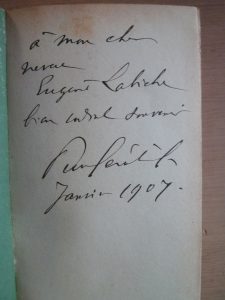 à mon cher
neveu
Eugène Labiche
bien cordial souvenir
Janvier 1907.